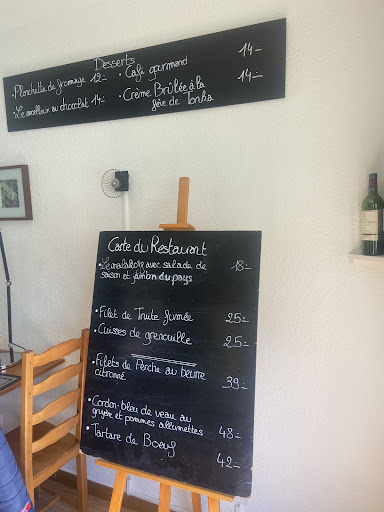 Desserts
• Planchette de fromage 12.-
• Le moelleux au chocolat 14.-
• Café gourmand 14.-
• Crème Brûlée à la 14.-
fève de Tonka
Carte du Restaurant
• Le malakoff avec salade de 18.-
saison et jambon du pays
• Filet de Truite fumée 25.-
• Cuisses de grenouille 25.-
• Filets de Perche au beurre
citronné 39.-
• Cordon-bleu de veau au
gruyère et pommes allumettes 48.-
• Tartare de Boeuf 42.-